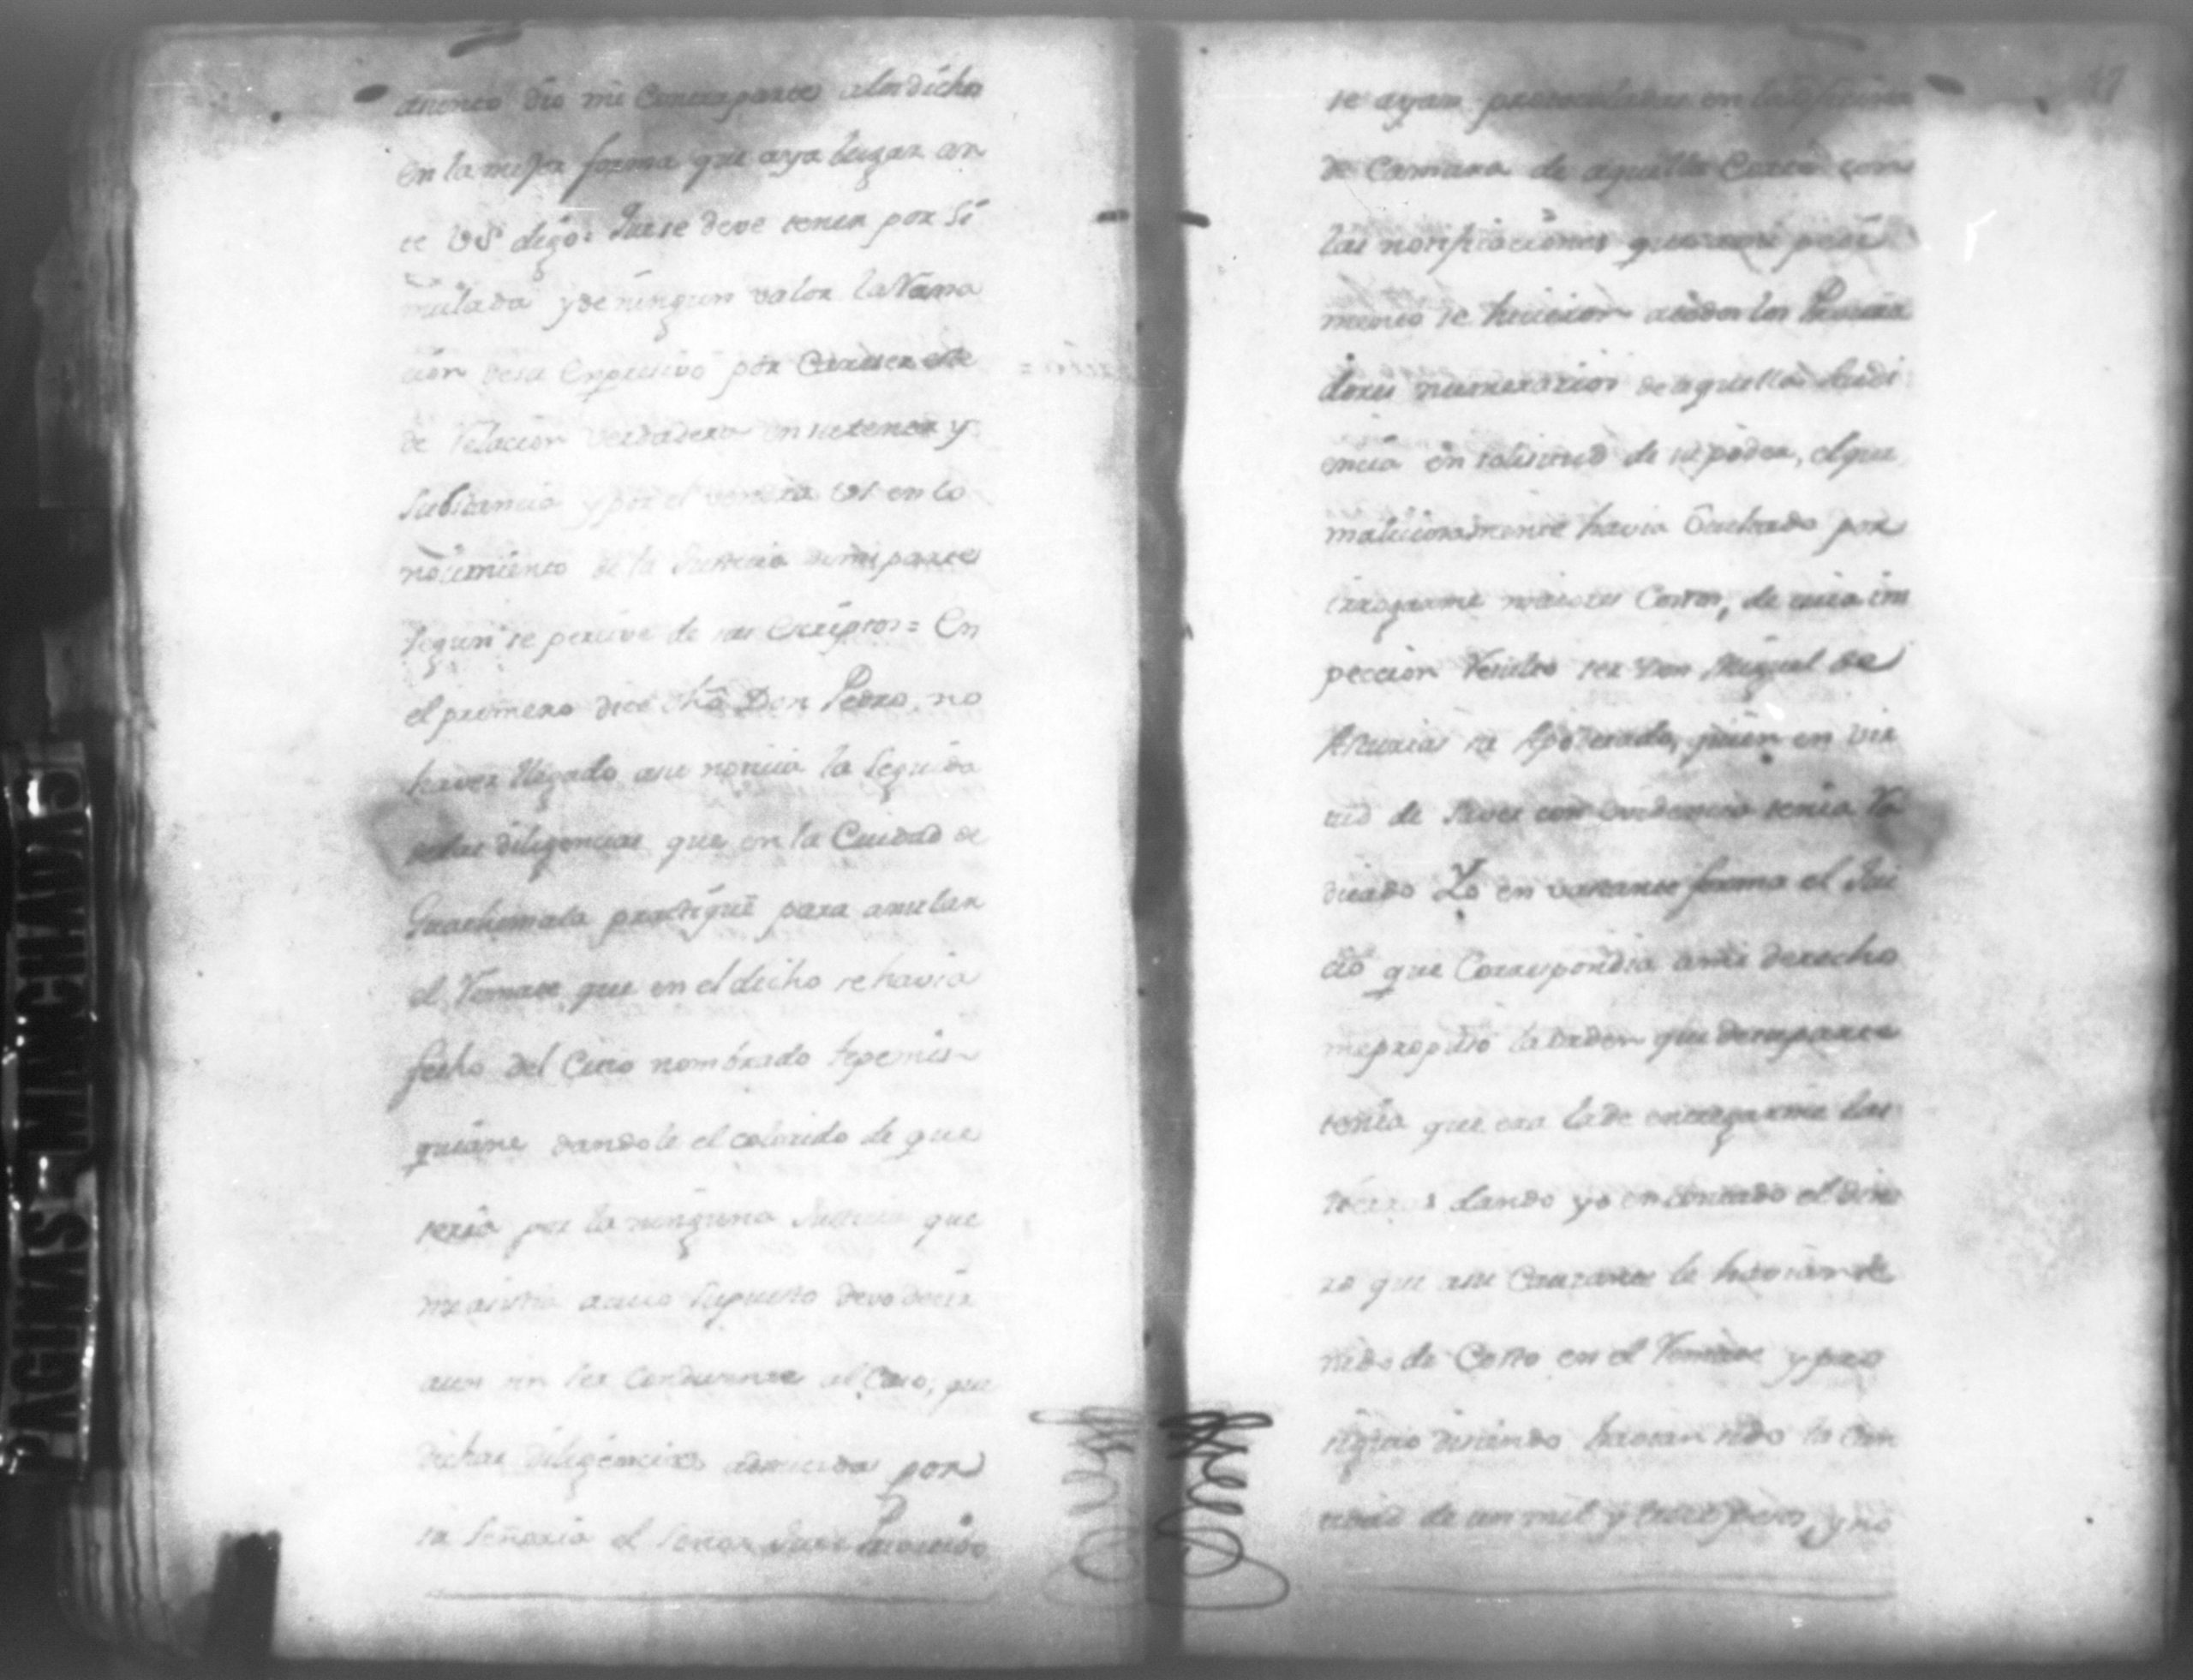 PAGINAS MANCHADAS
dio mi Contraparte alo dicho
en la mejor forma que aya lugar an
te VS digo: Que se deve tener por si
mulada y de ningun valor la Narra
cion de su Expresivo por Carecer este
de relacion verdadera en su tenor y
Substancia y por el VS en co
nocimiento de la Justicia de mi parte
segun se percive de sus escriptos = En
el primero dice dho Don Pedro, no
haver llegado a su noticia la seguida
de las diligencias que en la Ciudad de
Guathemala practiqué para anular
el Remate que en el dicho se havia
fecho del Citio nombrado tepemis
quiane dandole el colorido de que
seria por la ninguna Justicia que
me asistia a cuio supuesto devo decir
aun sin ser Conducente al Caso, que
dichas diligencias admitida por
su Señoria el Señor Juez Privativo
se ayan protocoladas en la oficina
de Camara de aquella Corte con
las notificaciones que
mento se hicieron a todos los Procura
dores numerarios de aquella Audi
encia en solisitud de su poder, el que
maliciosamente havia Ocultado por
irrogarme maiores Costos, de cuia ins
peccion resulto ser Don Miguel de
Asturias su Apoderado, quien en vir
tud de saver con evidencia tenia ra
dicado Yo en bastante forma el Jui
cio que Correspondia a mi derecho
me propuso la orden que de su parte
tenia que era la de entregarme las
tierras dando yo en contado el dine
ro que a su Causante le havian te
nido de Costo en el Remate y pro
siguio disiendo havian sido la can
tidad de un mil y trece pesos, y no